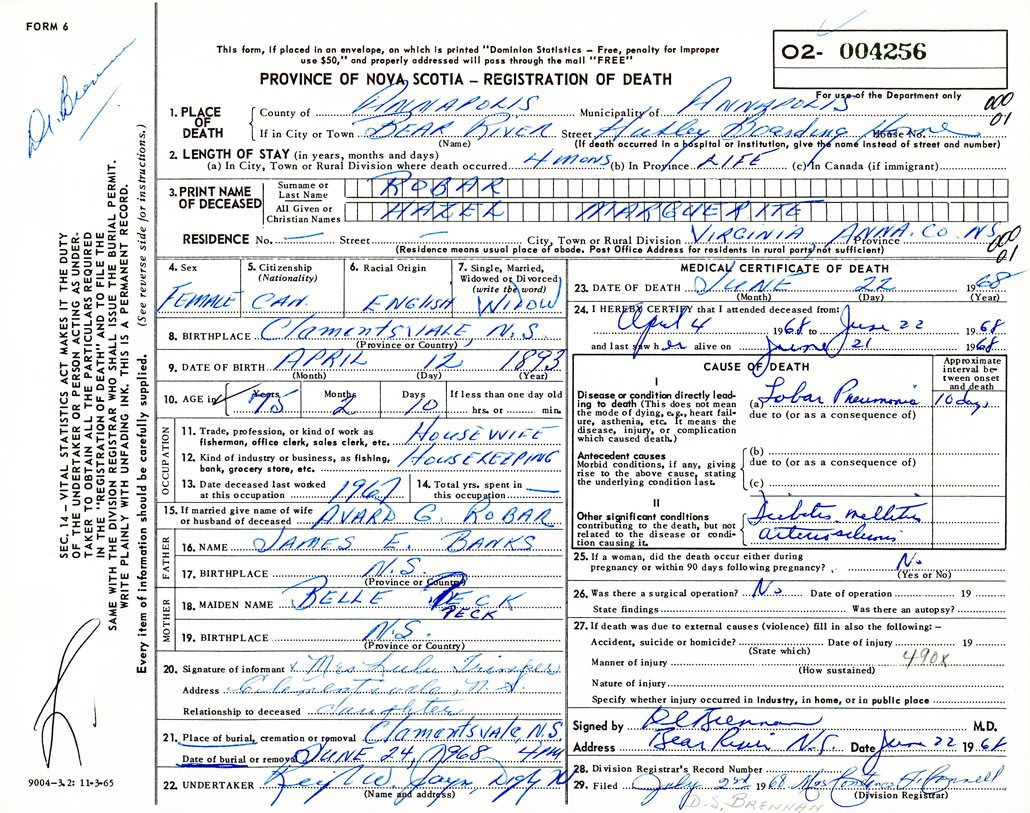 FORM 6
Dr. Brennan
This form, if placed in an envelope, on which is printed "Dominion Statistics – Free, penalty for improper
use $50," and properly addressed will pass through the mail "FREE"
PROVINCE OF NOVA SCOTIA – REGISTRATION OF DEATH
O2- 004256
For use of the Department only
000
01
1. PLACE OF DEATH
County of ANNAPOLIS Municipality of ANNAPOLIS
If in City or Town BEAR RIVER Street Boarding Home House No.
(Name) (If death occurred in a hospital or institution, give the name instead of street and number)
2. LENGTH OF STAY (in years, months and days)
(a) In City, Town or Rural Division where death occurred 4 mons (b) In Province LIFE (c) In Canada (if immigrant)
3. PRINT NAME OF DECEASED
Surname or Last Name ROBAR
All Given or Christian Names HAZEL MARGUERITE
RESIDENCE No. — Street — City, Town or Rural Division VIRGINIA ANNA. CO. Province NS
(Residence means usual place of abode. Post Office Address for residents in rural parts not sufficient)
000
01
4. Sex FEMALE
5. Citizenship (Nationality) CAN.
6. Racial Origin ENGLISH
7. Single, Married, Widowed or Divorced (write the word) WIDOW
8. BIRTHPLACE Clamentsvale, N.S.
(Province or Country)
9. DATE OF BIRTH APRIL 12 1893
(Month) (Day) (Year)
10. AGE in Years 75 Months 2 Days 10 If less than one day old
hrs. or min.
OCCUPATION
11. Trade, profession, or kind of work as
fisherman, office clerk, sales clerk, etc. HOUSEWIFE
12. Kind of industry or business, as fishing,
bank, grocery store, etc. HOUSEKEEPING
13. Date deceased last worked
at this occupation 1967
14. Total yrs. spent in
this occupation —
15. If married give name of wife
or husband of deceased AVARD G. ROBAR
FATHER
16. NAME JAMES E. BANKS
17. BIRTHPLACE N.S.
(Province or Country)
MOTHER
18. MAIDEN NAME BELLE PECK
PECK
19. BIRTHPLACE N.S.
(Province or Country)
20. Signature of informant x Mrs Lulu Trimper
Address Clementsvale, N.S.
Relationship to deceased daughter
21. Place of burial, cremation or removal Clamentsvale, N.S.
Date of burial or removal JUNE 24, 1968 4 PM
22. UNDERTAKER
(Name and address)
MEDICAL CERTIFICATE OF DEATH
23. DATE OF DEATH JUNE 22 1968
(Month) (Day) (Year)
24. I HEREBY CERTIFY that I attended deceased from:
April 4 1968 to June 22 1968
and last saw her alive on June 21 1968
CAUSE OF DEATH
Approximate interval between onset and death
I
Disease or condition directly leading to death (This does not mean the mode of dying, e.g., heart failure, asthenia, etc. It means the disease, injury, or complication which caused death.)
(a) Lobar Pneumonia 10 days
due to (or as a consequence of)
Antecedent causes
Morbid conditions, if any, giving rise to the above cause, stating the underlying condition last.
(b)
due to (or as a consequence of)
(c)
II
Other significant conditions
contributing to the death, but not related to the disease or condition causing it.
Diabetes mellitus
arteriosclerosis
25. If a woman, did the death occur either during
pregnancy or within 90 days following pregnancy? No
(Yes or No)
26. Was there a surgical operation? No Date of operation 19
State findings Was there an autopsy?
27. If death was due to external causes (violence) fill in also the following: –
Accident, suicide or homicide? Date of injury 19
(State which)
Manner of injury 490X
(How sustained)
Nature of injury
Specify whether injury occurred in Industry, in home, or in public place
Signed by Brennan M.D.
Address Bear River N.S. Date June 22 1968
28. Division Registrar's Record Number
29. Filed July 2nd 1968
(Division Registrar)
D.S. BRENNAN
SEC. 14 – VITAL STATISTICS ACT MAKES IT THE DUTY
OF THE UNDERTAKER OR PERSON ACTING AS UNDER-
TAKER TO OBTAIN ALL THE PARTICULARS REQUIRED
IN THE "REGISTRATION OF DEATH" AND TO FILE THE
SAME WITH THE DIVISION REGISTRAR WHO SHALL ISSUE THE BURIAL PERMIT.
WRITE PLAINLY WITH UNFADING INK. THIS IS A PERMANENT RECORD.
Every item of information should be carefully supplied. (See reverse side for instructions.)
9004-3.2: 11-3-65